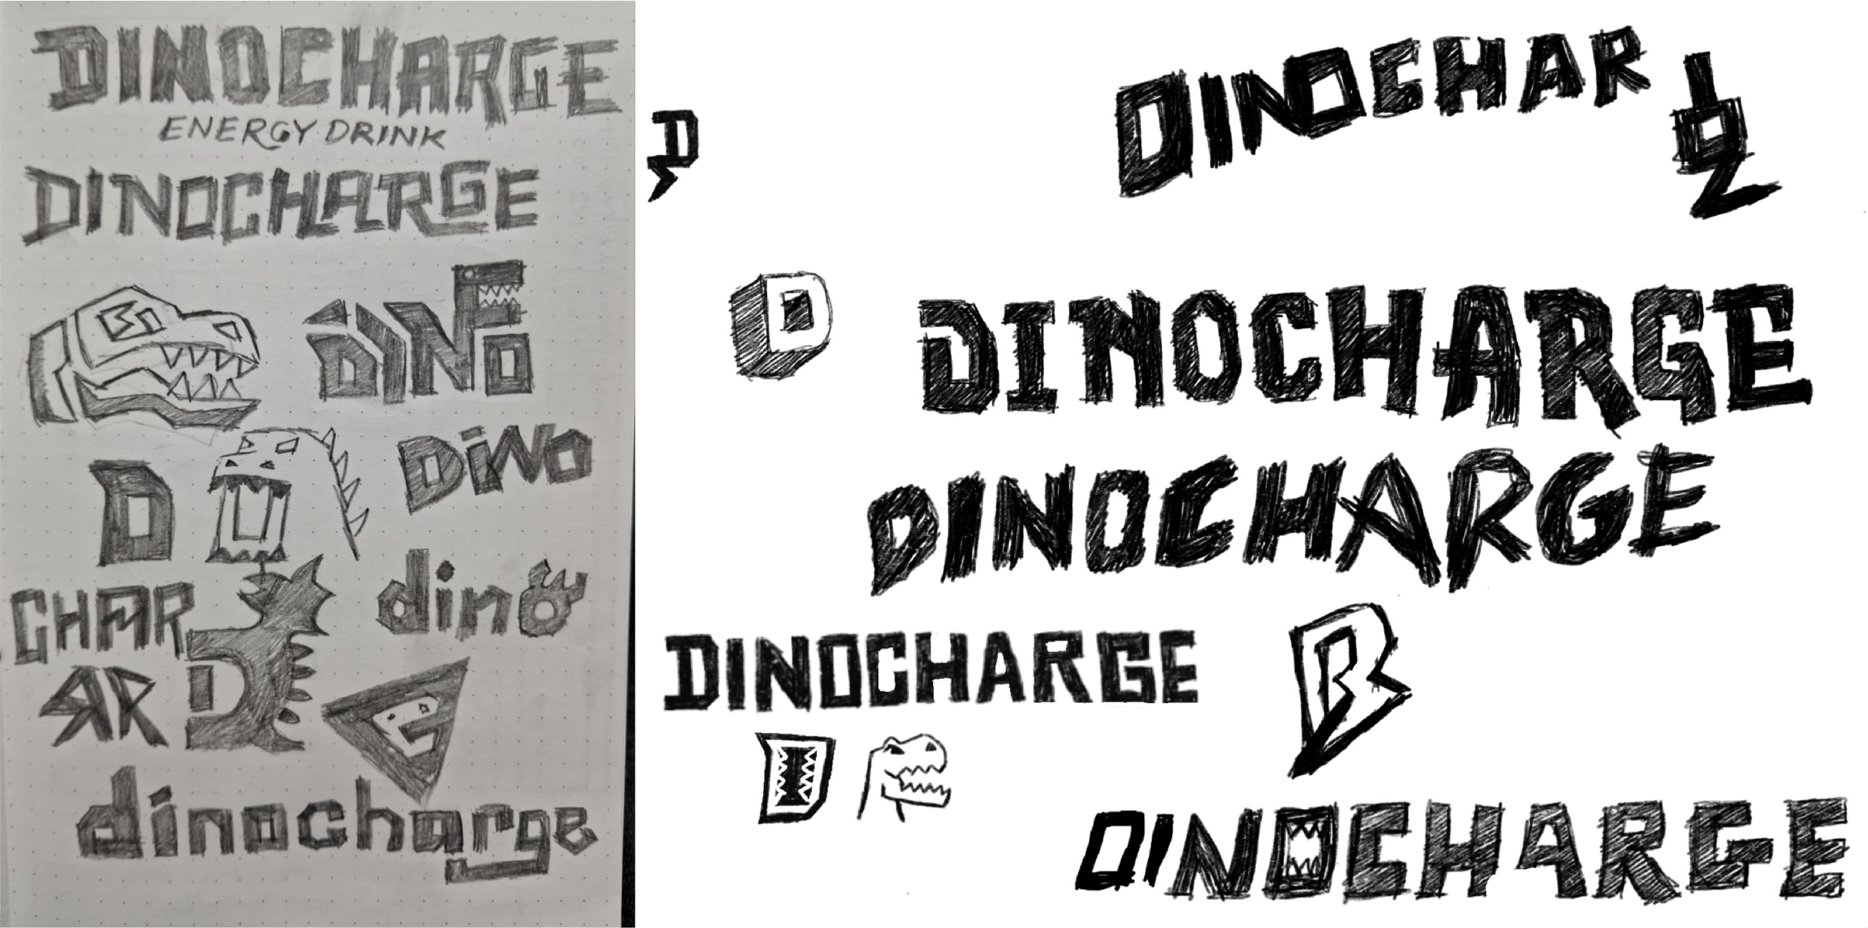 DINOCHARGE
ENERGY DRINK
DINOCHARGE
DINO
DiNO
D
CHAR
dino
D
RR
G
dinocharge
D
DINOCHAR
D
DINOCHARGE
DINOCHARGE
DINOCHARGE
R
D
DINOCHARGE